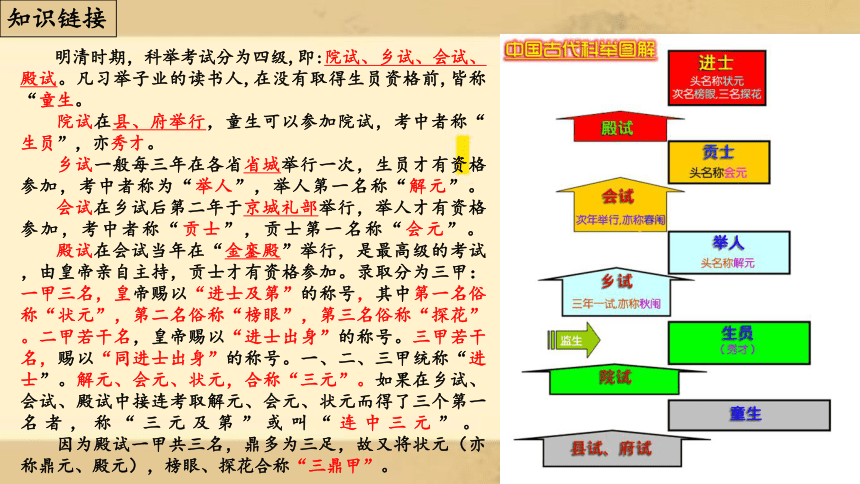 知识链接
明清时期，科举考试分为四级,即:院试、乡试、会试、
殿试。凡习举子业的读书人,在没有取得生员资格前,皆称
“童生。
院试在县、府举行，童生可以参加院试，考中者称“
生员”,亦秀才。
乡试一般每三年在各省省城举行一次，生员才有资格
参加，考中者称为“举人”，举人第一名称“解元”。
会试在乡试后第二年于京城礼部举行，举人才有资格
参加，考中者称“贡士”，贡士第一名称“会元”。
殿试在会试当年在“金銮殿”举行，是最高级的考试
，由皇帝亲自主持，贡士才有资格参加。录取分为三甲：
一甲三名，皇帝赐以“进士及第”的称号，其中第一名俗
称“状元”，第二名俗称“榜眼”，第三名俗称“探花”
。二甲若干名，皇帝赐以“进士出身”的称号。三甲若干
名，赐以“同进士出身”的称号。一、二、三甲统称“进
士”。解元、会元、状元，合称“三元”。如果在乡试、
会试、殿试中接连考取解元、会元、状元而得了三个第一
名者，称“三元及第”或叫“连中三元”。
因为殿试一甲共三名，鼎多为三足，故又将状元（亦
称鼎元、殿元），榜眼、探花合称“三鼎甲”。
中国古代科举图解
进士
头名称状元
次名榜眼,三名探花
殿试
贡士
头名称会元
会试
次年举行,亦称春闱
举人
头名称解元
乡试
三年一试,亦称秋闱
监生
生员
（秀才）
院试
童生
县试、府试